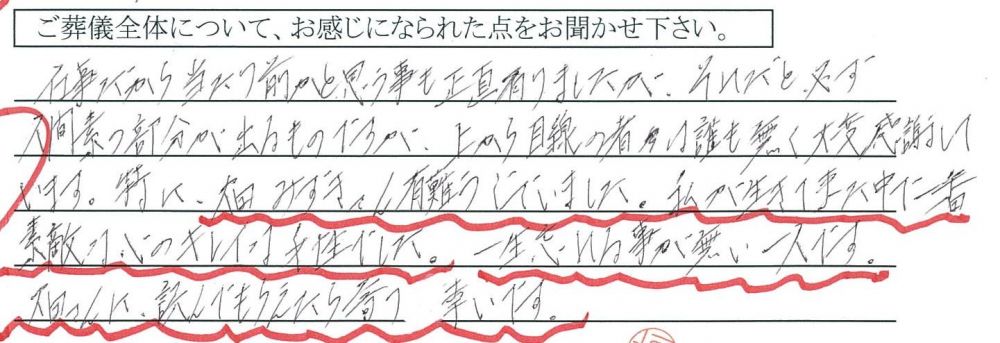 ご葬儀全体について、お感じになられた点をお聞かせ下さい。
仕事だから当たり前かと思う事も正直有りましたが、それだと必ず
人間素の部分が出るものだろうが、上から目線の者は誰も無く大変感謝して
います。特に、 みずきさん有難うございました。私が生きて来た中で一番
素敵な心のキレイな女性でした。一生忘れる事が無い一人です。
さんに、読んでもらえたら幸いです。